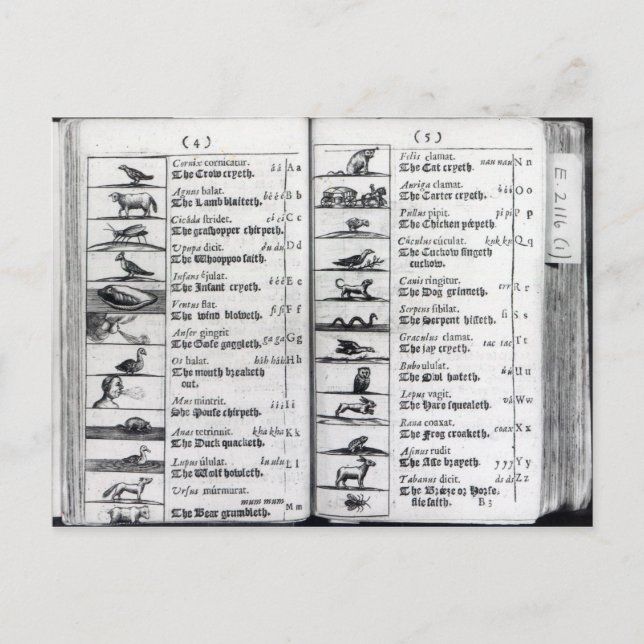 ( 4 )
Cornix cornicatur. á á A a
The Crow cryeth.
Agnus balat. bé é é B b
The Lamb blaiteth.
Cicāda stridet. cí cí C c
The grashopper chirpeth.
Upupa dicit. du du D d
The Whooppoo saith.
Infans éjulat. é é é E e
The Infant cryeth.
Ventus flat. fi fi F f
The wind bloweth.
Anser gingrit ga ga G g
The Goose gaggleth.
Os halat. hàh hàh H h
The mouth breatheth
out.
Mus mintrit. í í í I i
The Mouse chirpeth.
Anas tetrinnit. kha kha K k
The Duck quacketh.
Lupus úlulat. lu ulu L l
The Wolf howleth.
Ursus múrmurat.
mum mum M m
The Bear grumbleth.
( 5 )
Felis clamat. nau nau N n
The Cat cryeth.
Auriga clamat. ó ó ó O o
The Carter cryeth.
Pullus pipit. pi pi P p
The Chicken peepeth.
Cúculus cúculat. kuk ku Q q
The Cuckow singeth
cuckow.
Canis ringitur. err R r
The Dog grinneth.
Serpens sibilat. si S s
The Serpent hisseth.
Graculus clamat. tac tac T t
The jay cryeth.
Bubo ululat. ú ú U u
The Owl hooteth.
Lepus vagit. vá W w
The Hare squeaketh.
Rana coaxat. coax X x
The Frog croaketh.
Asinus rudit y y y Y y
The Asse brayeth.
Tabanus dicit. ds ds Z z
The Breeze or Horse-
flie saith. B 3
E. 2116 (1)